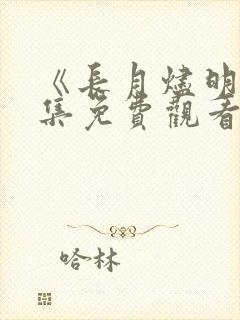 《長月燼明
集免費觀看
哈林